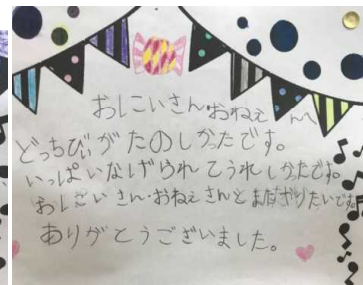 おにいさんおねえ んへ
どっちびぃがたのしかたです。
いっぱいなげられてうれしかたです。
おにいさん・おねえさんとまたやりたいです。
ありがとうございました。